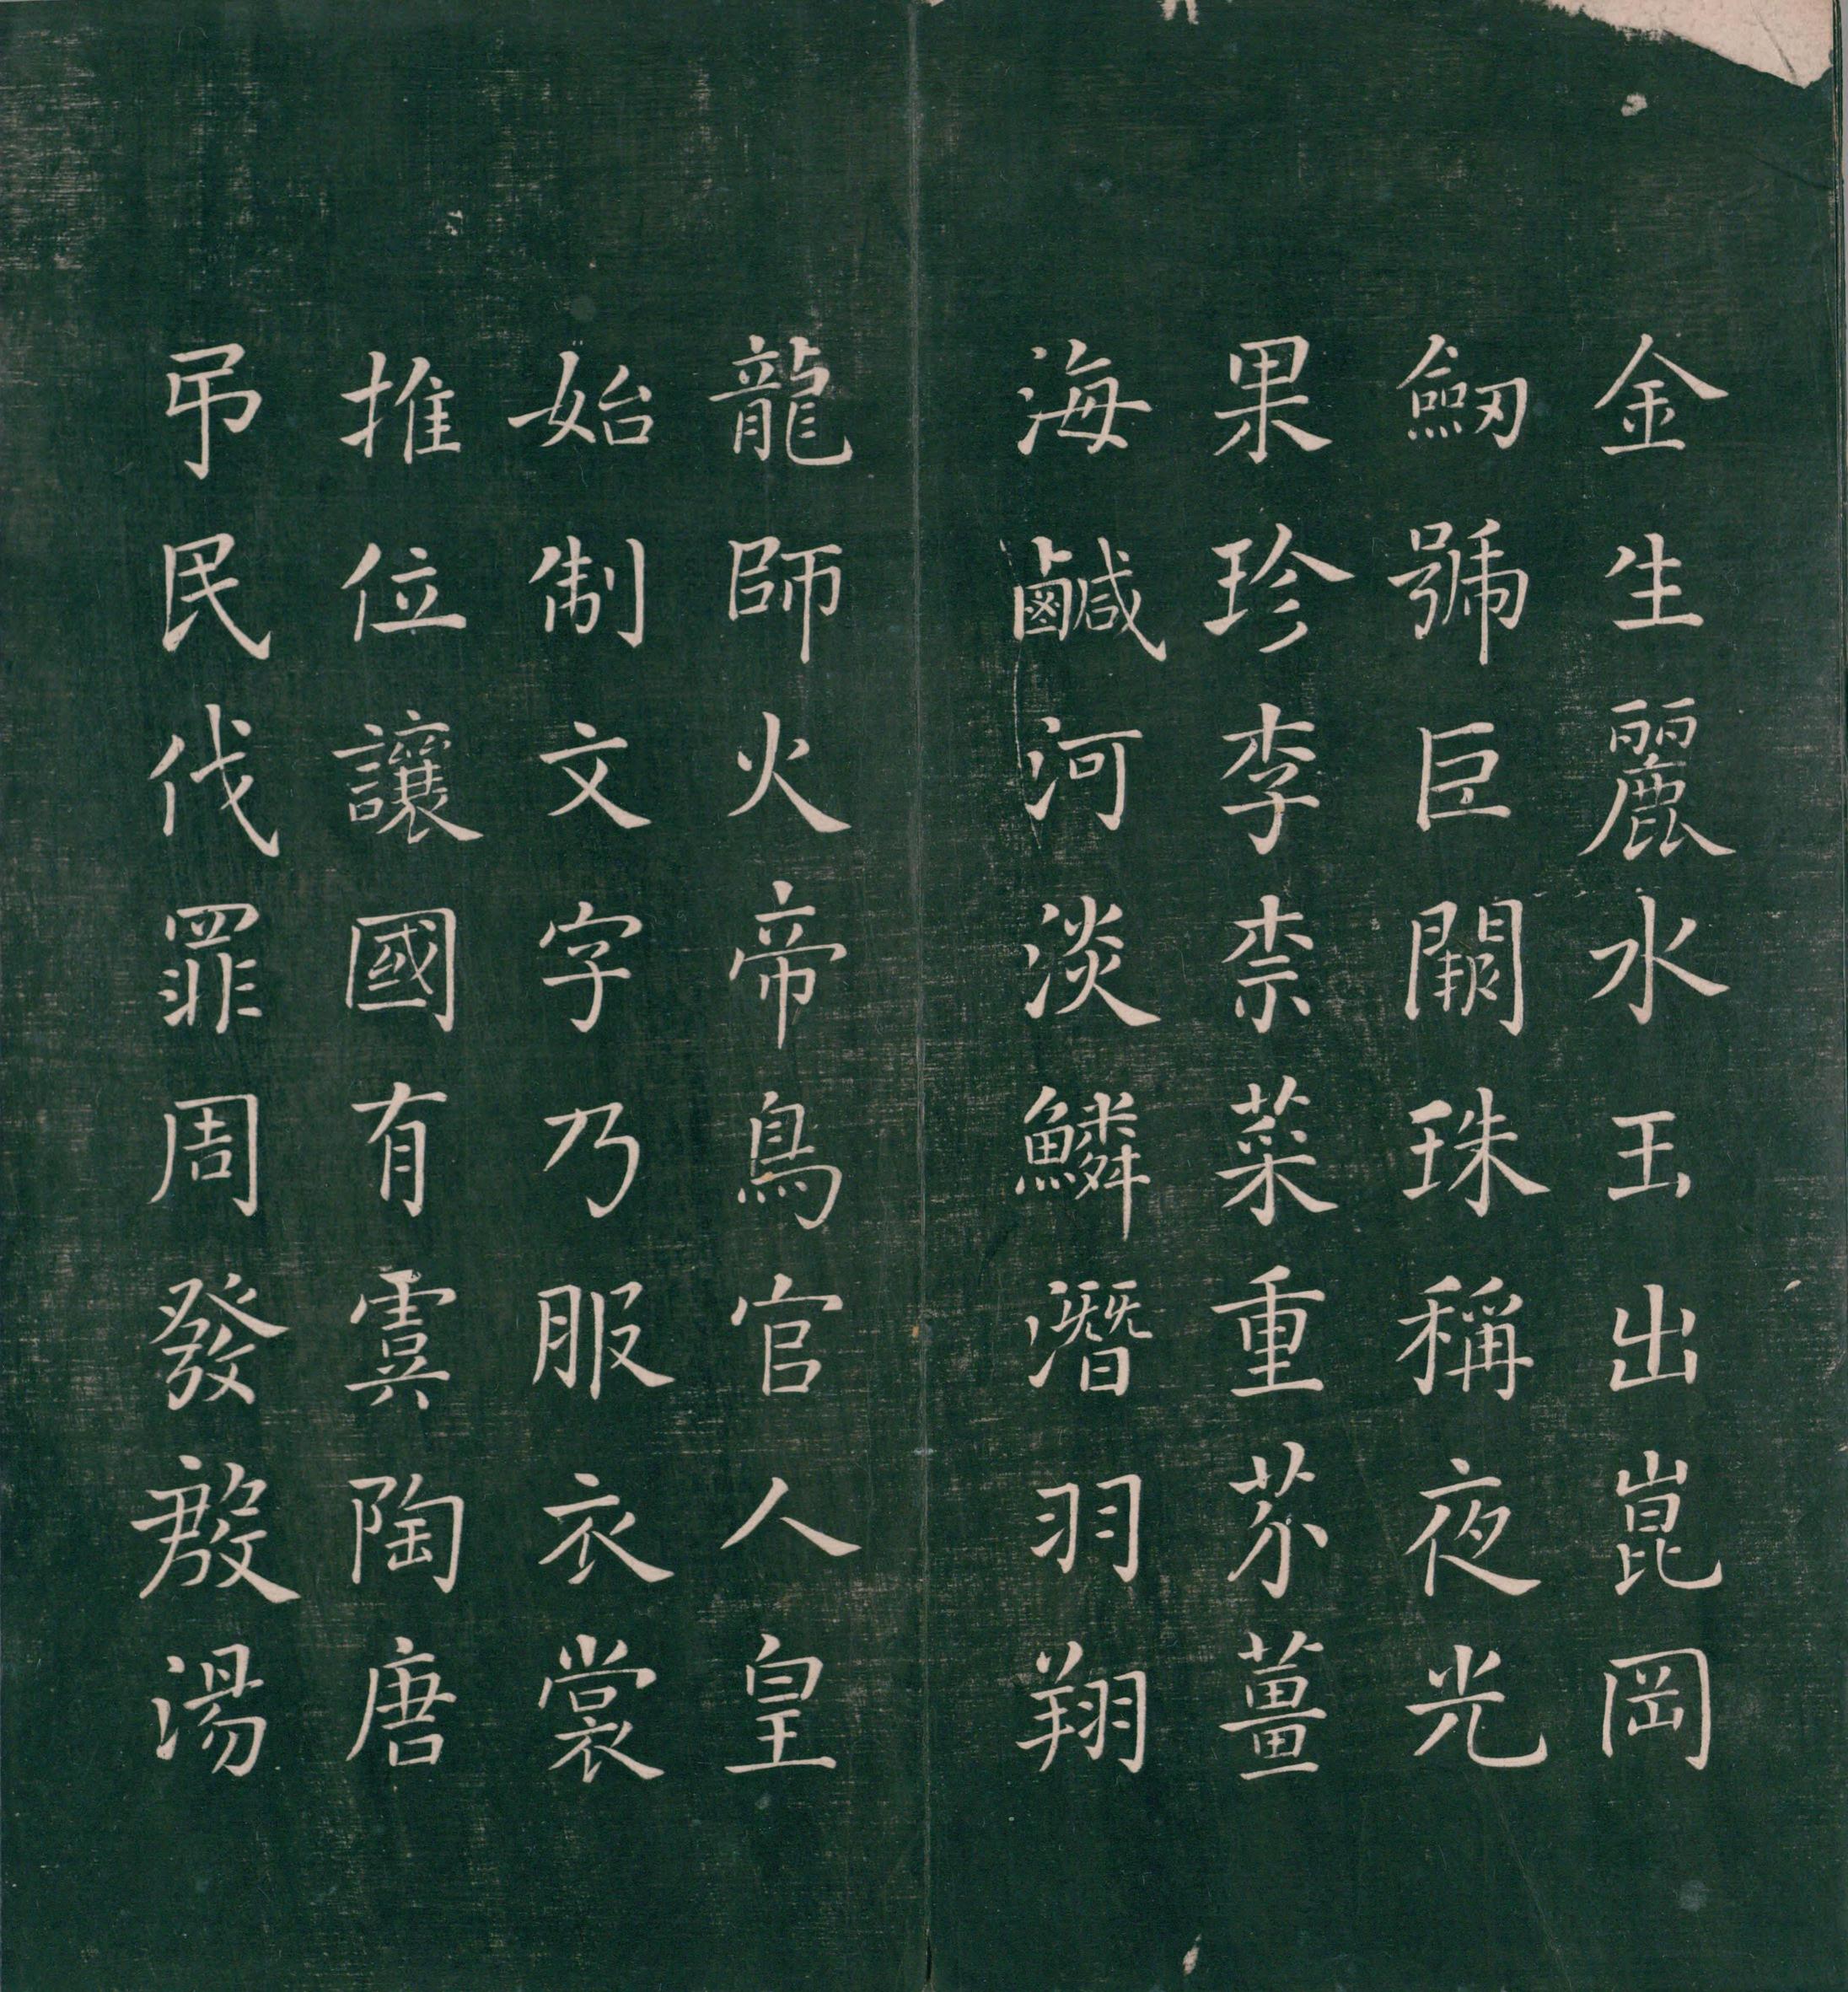 金生麗水玉出崑岡
劒號巨闕珠稱夜光
果珍李柰菜重芥薑
海鹹河淡鱗潛羽翔
龍師火帝鳥官人皇
始制文字乃服衣裳
推位讓國有虞陶唐
弔民伐罪周發殷湯